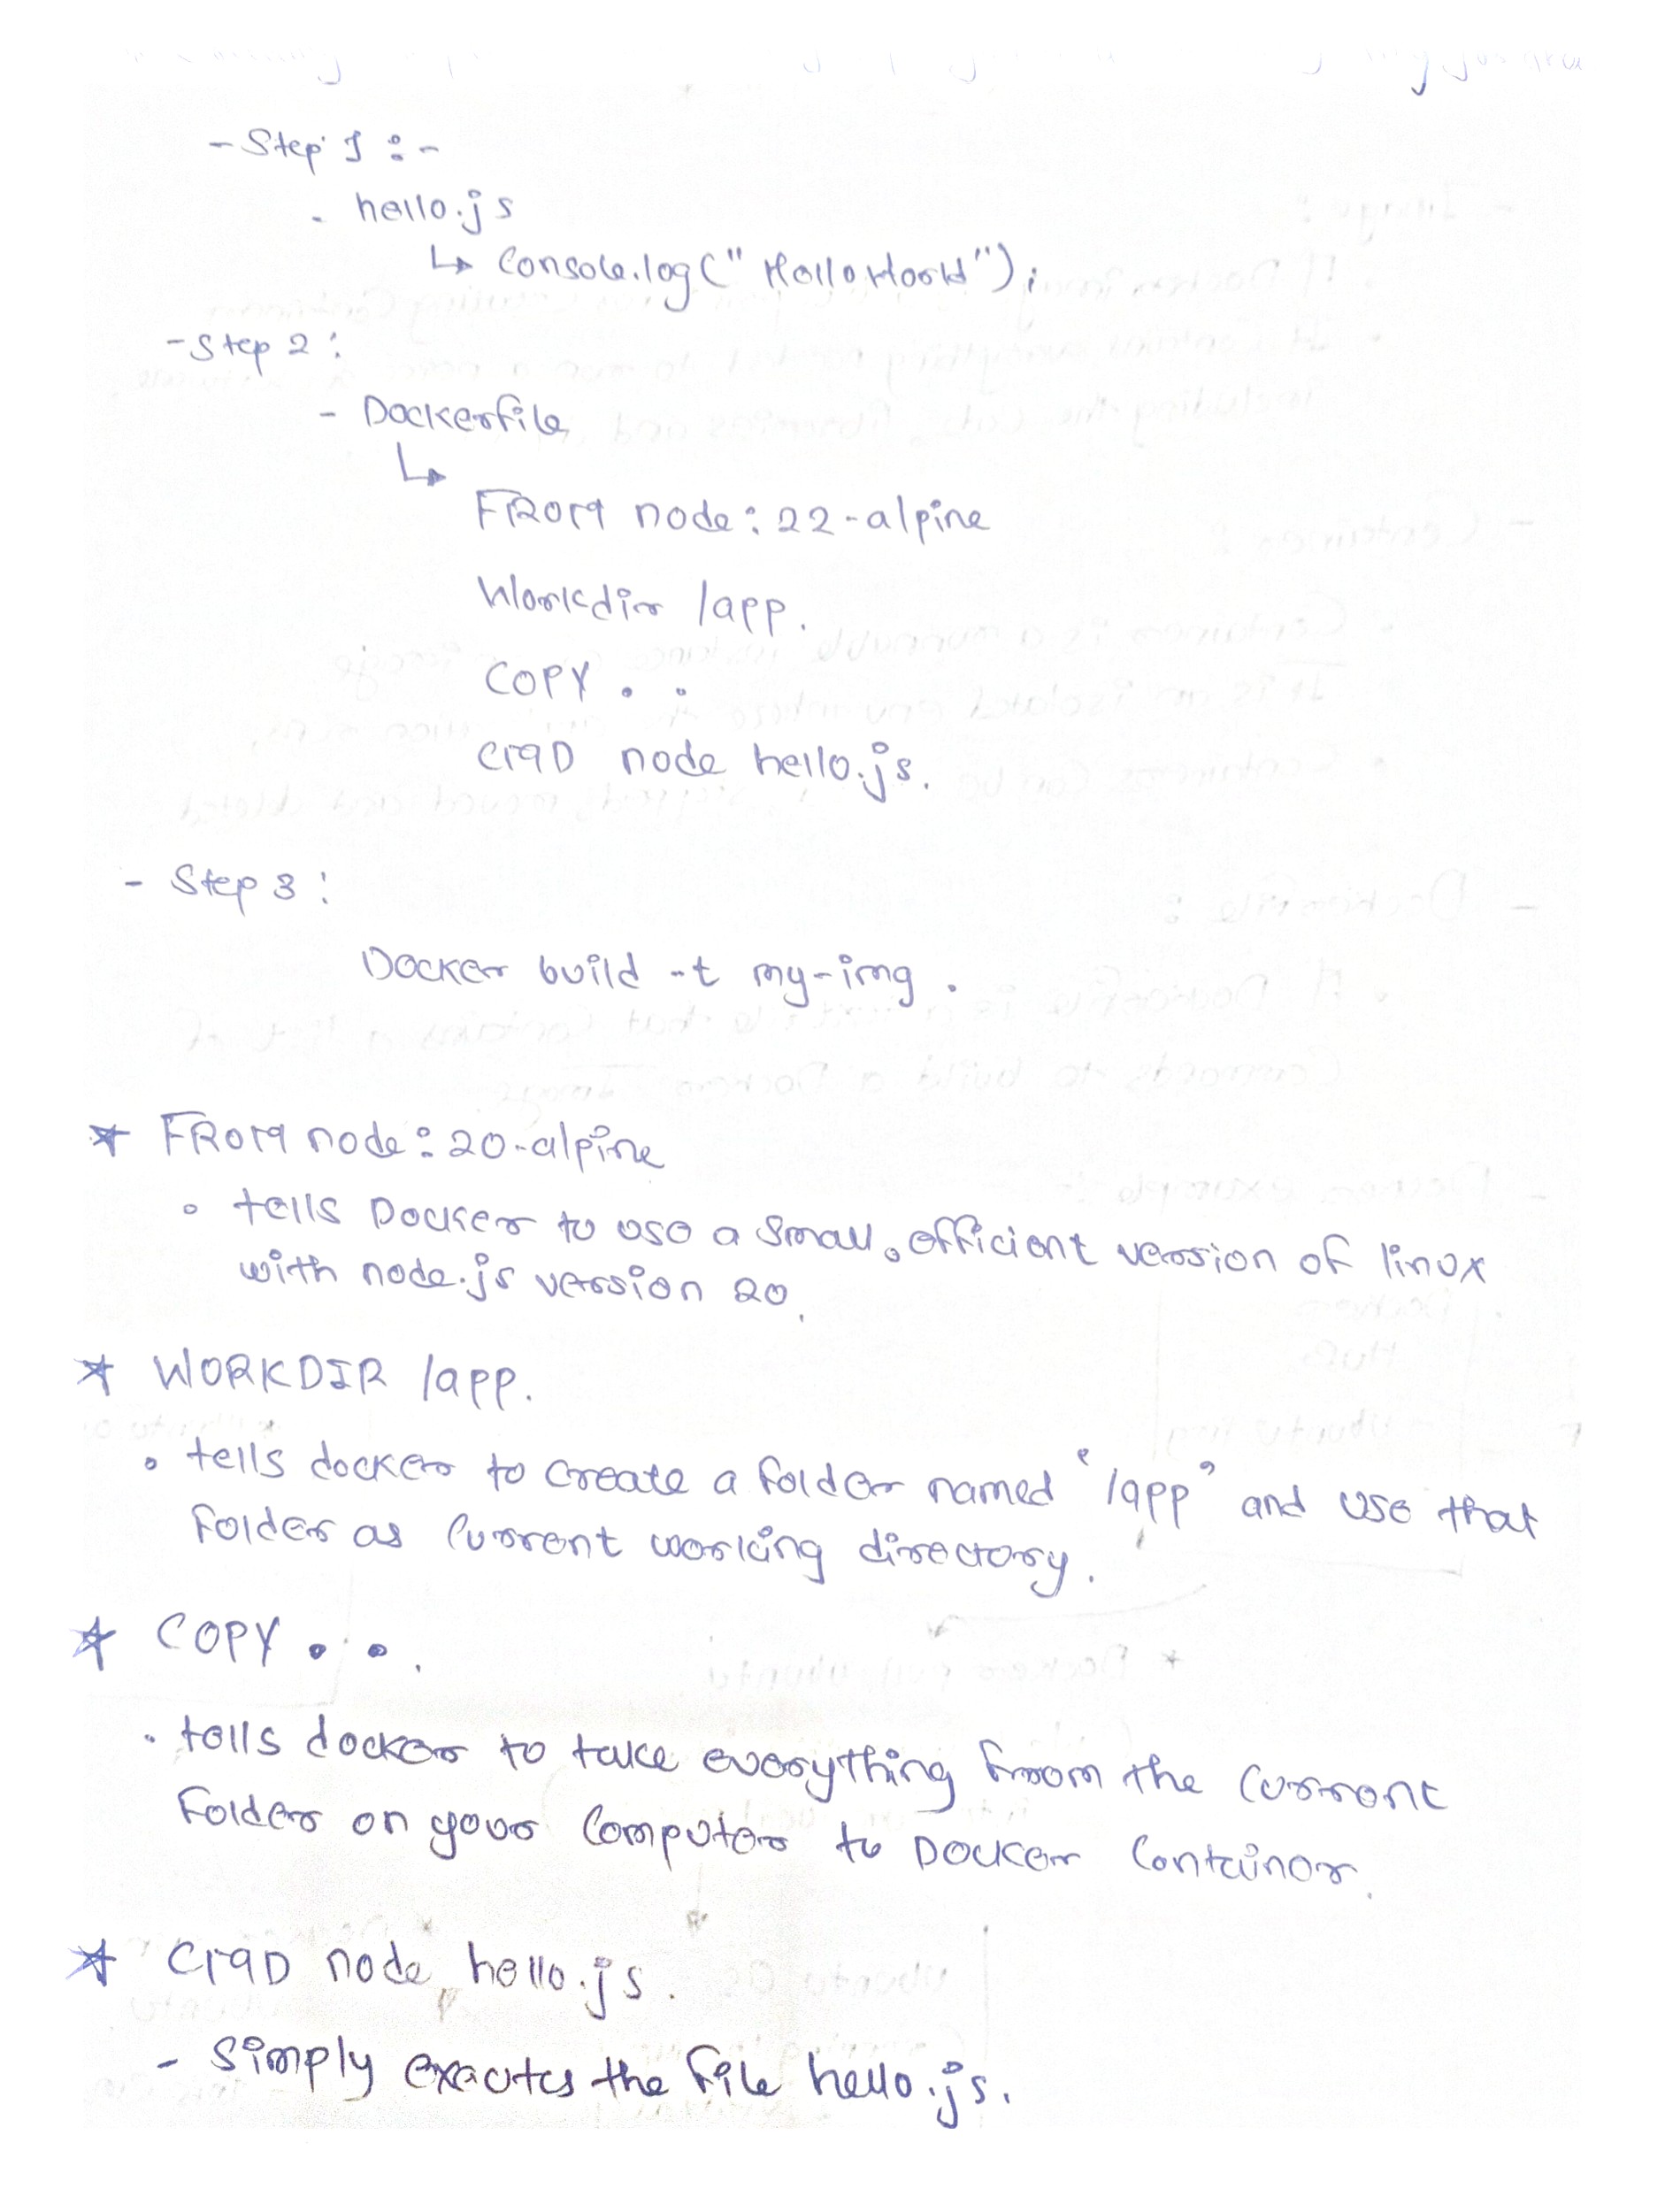 - Step 1 :-
. hello.js
↳ Console.log("Hello World");
- Step 2 :
- Dockerfile
↳
FROM node: 22-alpine
Workdir /app.
COPY . .
CMD node hello.js.
- Step 3 :
Docker build -t my-img .
* FROM node: 20-alpine
• tells Docker to use a small, efficient version of linux
with node.js version 20.
* WORKDIR /app.
• tells docker to create a folder named "/app" and use that
folder as current working directory.
* COPY . . .
• tells docker to take everything from the current
folder on your computer to Docker container.
* CMD node hello.js.
- simply executes the file hello.js.